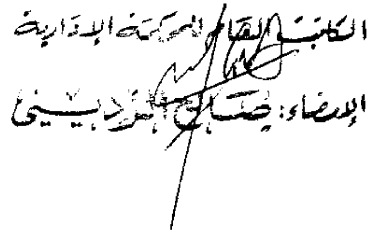 الكاتب العام للمحكمة الإدارية
الإمضاء: صالح المزديني